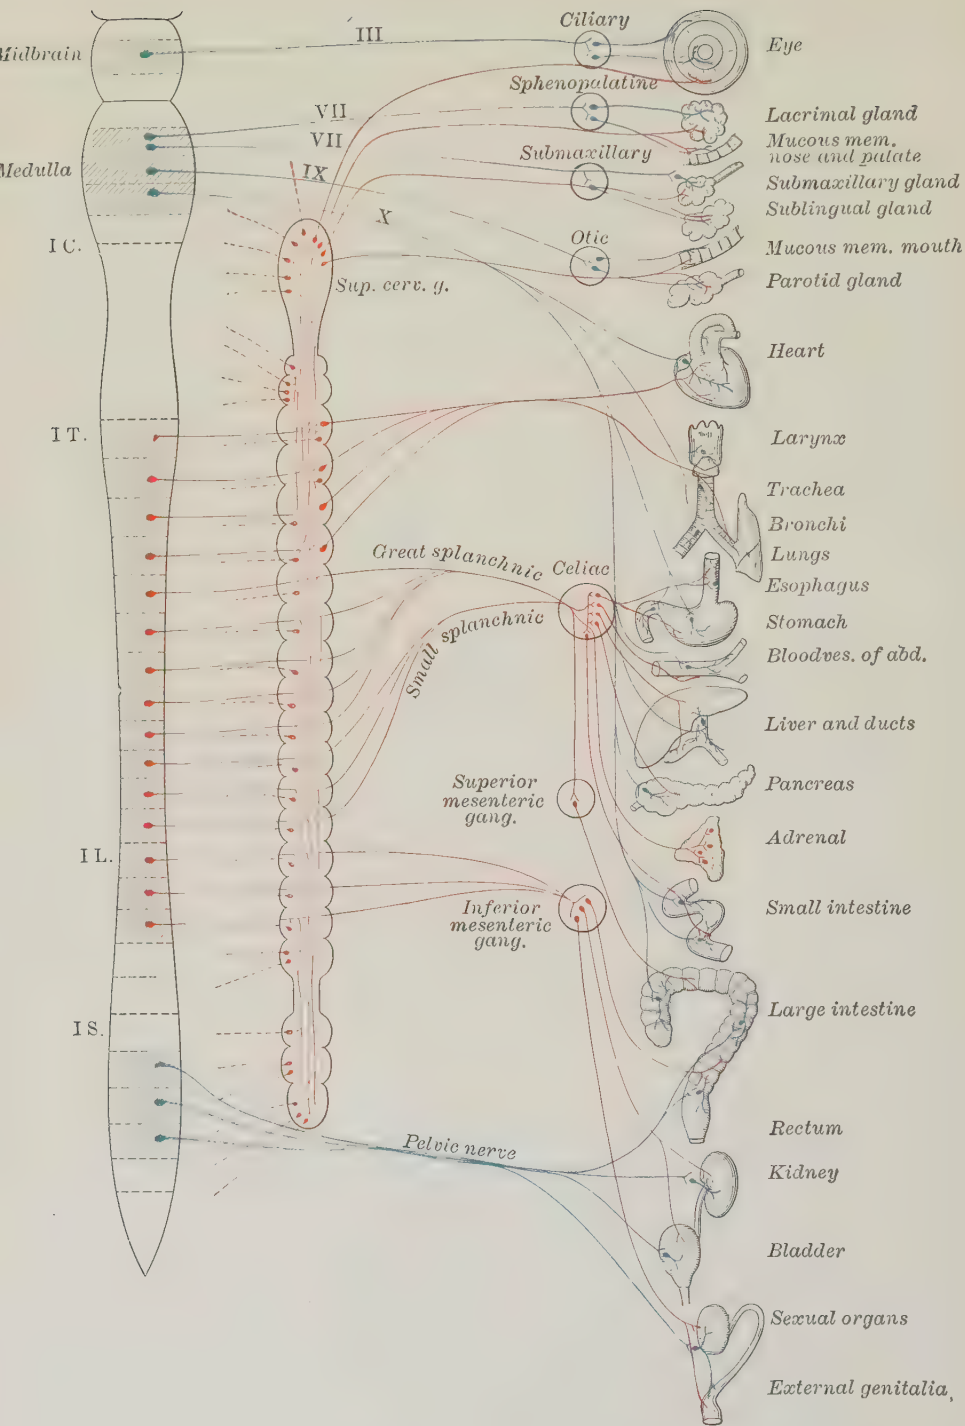 Midbrain
Medulla
I C.
I T.
I L.
I S.
III
VII
VII
IX
X
Sup. cerv. g.
Great splanchnic
Small splanchnic
Pelvic nerve
Ciliary
Sphenopalatine
Submaxillary
Otic
Celiac
Superior
mesenteric
gang.
Inferior
mesenteric
gang.
Eye
Lacrimal gland
Mucous mem.
nose and palate
Submaxillary gland
Sublingual gland
Mucous mem. mouth
Parotid gland
Heart
Larynx
Trachea
Bronchi
Lungs
Esophagus
Stomach
Bloodves. of abd.
Liver and ducts
Pancreas
Adrenal
Small intestine
Large intestine
Rectum
Kidney
Bladder
Sexual organs
External genitalia,